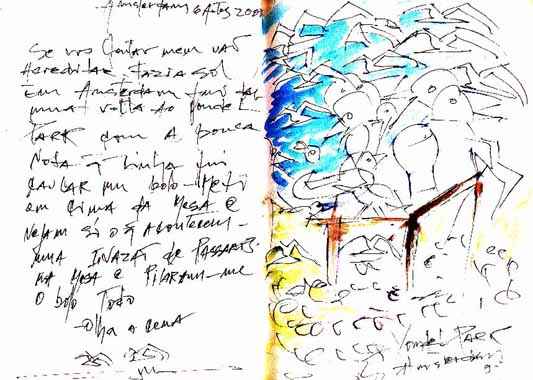 Amsterdam 6 Agos 200
Se vos contar nem vão
Acreditar fazia sol
Em Amsterdam fui dar
uma volta ao Vondel
Park com a pouca
Nota q tinha fui
um bolo meti
em cima da mesa e
vejam só o q aconteceu
uma invazão de Passaros
na mesa e Pilaram-me
o bolo Todo
Olha a cena
Vondel Park
Amsterdam